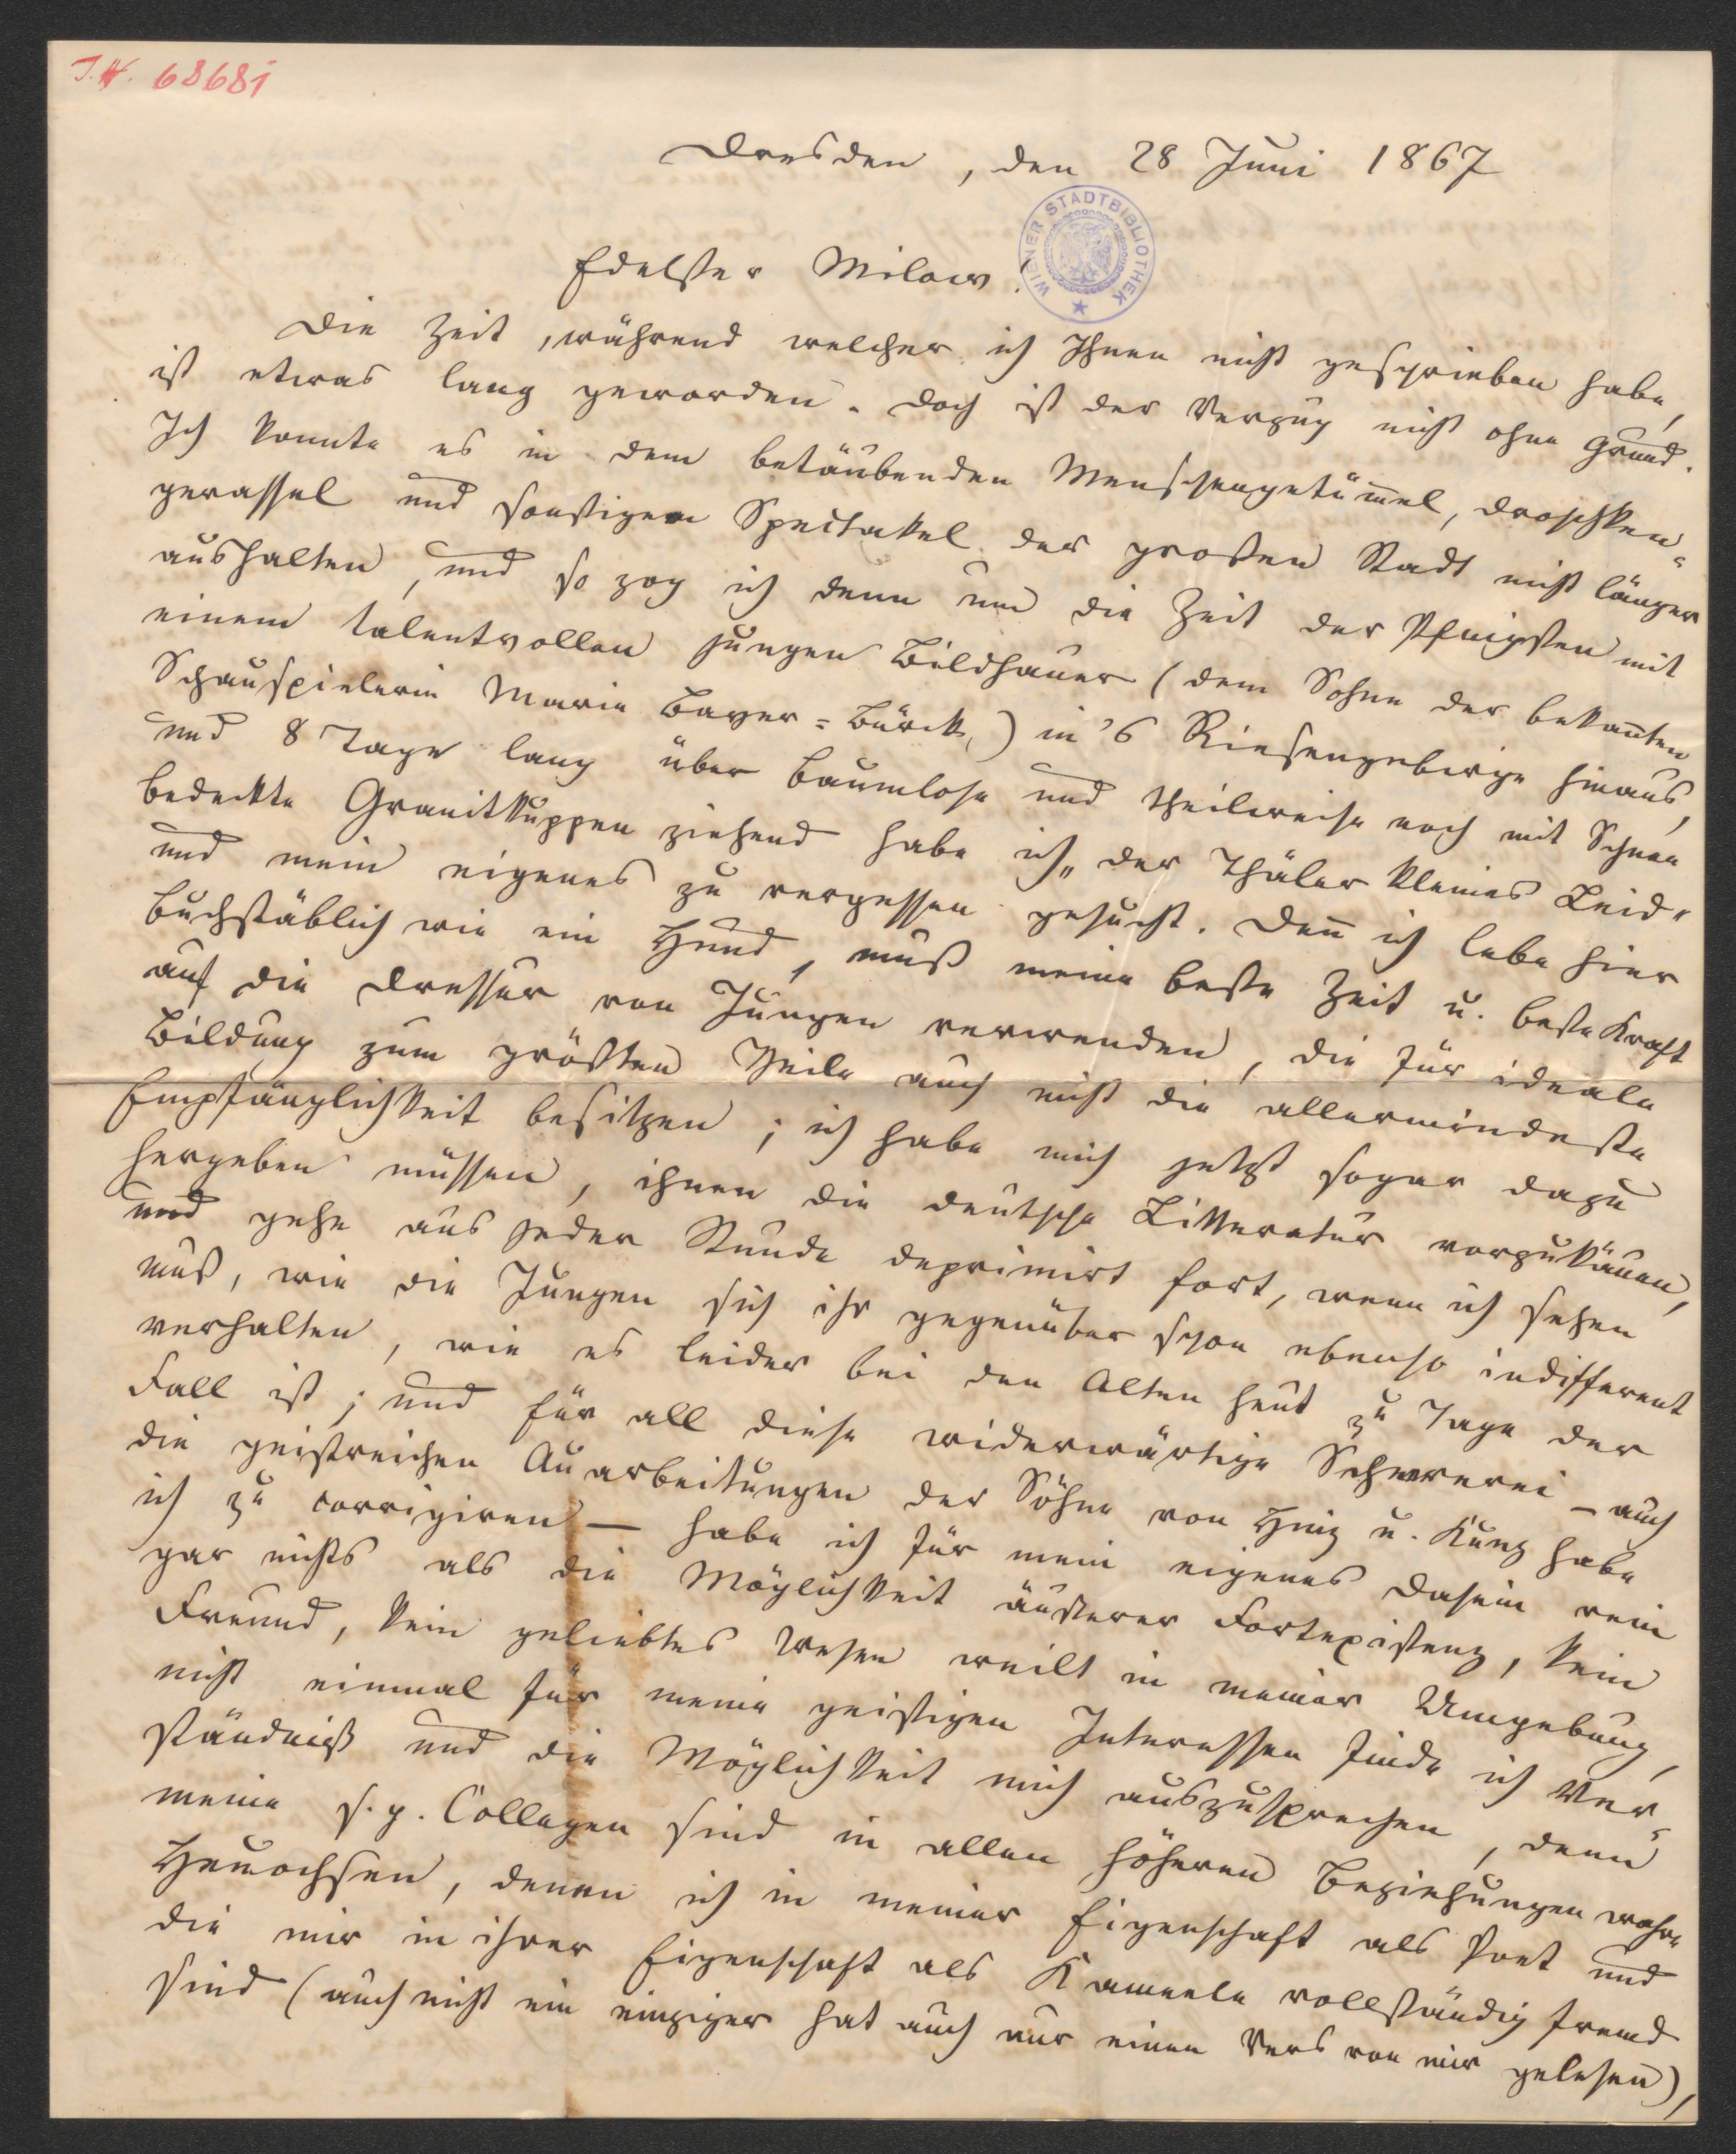 J.N. 68681
Dresden, den 28 Juni 1867
WIENER STADTBIBLIOTHEK
Edelster Milow!
Die Zeit, während welcher ich Ihnen nicht geschrieben habe,
ist etwas lang geworden. Doch ist der Verzug nicht ohne Grund.
Ich konnte es in dem betäubenden Menschengetüm̄el, Droschken-
gerassel und sonstigen Spectakel der großen Stadt nicht länger
aushalten, und so zog ich denn um die Zeit der Pfingsten mit
einem talentvollen jungen Bildhauer (dem Sohne der bekan̄ten
Schauspielerin Marie Bayer-Bürck,) in's Riesengebirge hinaus,
und 8 Tage lang über baumlose und theilweise noch mit Schnee
bedeckte Granitkuppen ziehend habe ich „der Thäler kleines Leid"
und mein eigenes zu vergessen gesucht. Den̄ ich lebe hier
buchstäblich wie ein Hund, muß meine beste Zeit u. beste Kraft
auf die Dressur von Jungen verwenden, die für ideale
Bildung zum größten Theile auch nicht die allermindeste
Empfänglichkeit besitzen; ich habe mich jetzt sogar dazu
hergeben müssen, ihnen die deutsche Litteratur vorzukäuen,
und gehe aus jeder Stunde deprimirt fort, wenn ich sehen
muß, wie die Jungen sich ihr gegenüber schon ebenso indifferent
verhalten, wie es leider bei den Alten heut zu Tage der
Fall ist; und für all diese widerwärtige Schererei – auch
die geistreichen Ausarbeitungen der Söhne von Hinz u. Kunz habe
ich zu corrigiren – habe ich für mein eigenes Dasein rein
gar nichts als die Möglichkeit äußerer Fortexistenz, kein
Freund, kein geliebtes Wesen weilt in meiner Umgebung,
nicht einmal für meine geistigen Interessen finde ich Ver-
ständniß und die Möglichkeit mich auszusprechen, denn
meine s.g. Collegen sind in allen höheren Beziehungen wahre
Heuochsen, denen ich in meiner Eigenschaft als Poet und
die mir in ihrer Eigenschaft als Kameele vollständig fremd
sind (auch nicht ein einziger hat auch nur einen Vers von mir gelesen),